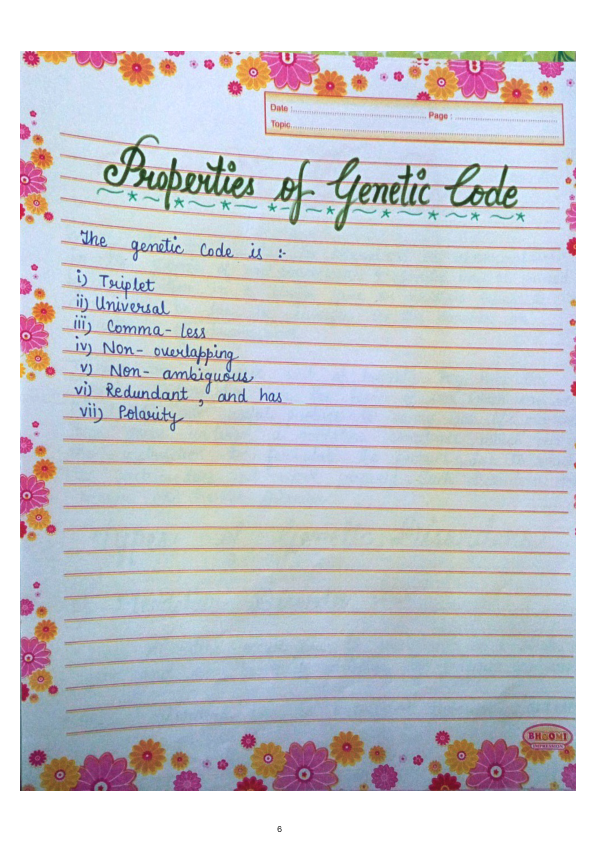 Date :
Page :
Topic
Properties of Genetic Code
The genetic code is :-
i) Triplet
ii) Universal
iii) Comma-less
iv) Non-overlapping
v) Non-ambiguous
vi) Redundant, and has
vii) Polarity
BHOOMI
6